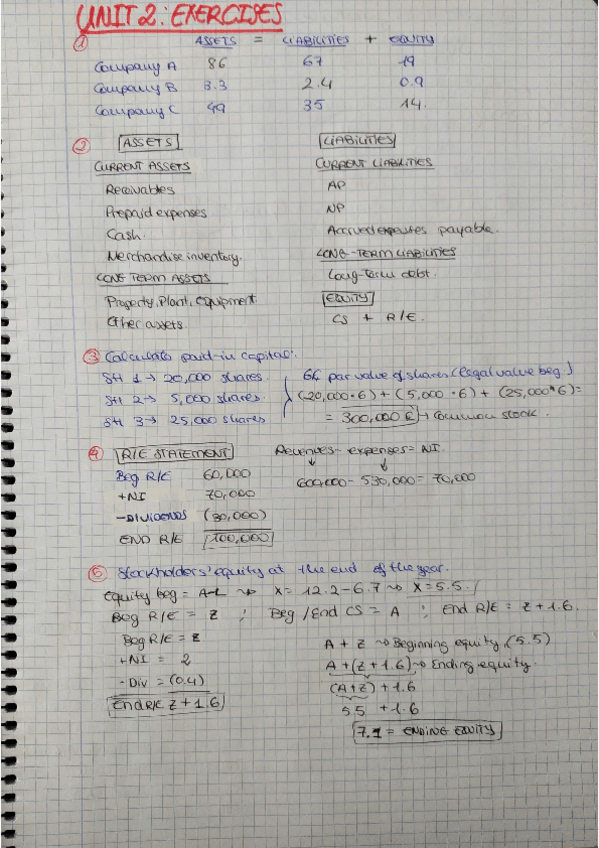 UNIT 2: EXERCISES
① ASSETS = LIABILITIES + EQUITY
Company A 86 67 19
Company B 3.3 2.4 0.9
Company C 49 35 14.
② ASSETS
CURRENT ASSETS
Receivables
Prepaid expenses
Cash.
Merchandise inventory.
LONG TERM ASSETS
Property, Plant, equipment
Other assets.
LIABILITIES
CURRENT LIABILITIES
AP
NP
Accrued expenses payable.
LONG-TERM LIABILITIES
Long-term debt.
EQUITY
CS + R/E.
③ Calculate paid-in capital:
SH 1 → 20,000 shares.
SH 2 → 5,000 shares.
SH 3 → 25,000 shares
6€ par value of shares (legal value beg.)
(20,000·6) + (5,000·6) + (25,000*6) =
= 300,000 € → Common stock.
④ R/E STATEMENT
Beg R/E 60,000
+NI 70,000
-DIVIDENDS (30,000)
END R/E 100,000
Revenues - expenses = NI.
↓ ↓
600,000 - 530,000 = 70,000
⑤ Stockholders' equity at the end of the year.
Equity beg = A-L → X = 12.2 - 6.7 → X = 5.5.
Beg R/E = Z ; Beg/End CS = A ; End R/E = Z + 1.6.
Beg R/E = Z
+NI = 2
-Div = (0.4)
End R/E Z + 1.6
A + Z → Beginning equity (5.5)
A + (Z + 1.6) → Ending equity.
(A+Z) + 1.6
5.5 + 1.6
7.1 = ENDING EQUITY